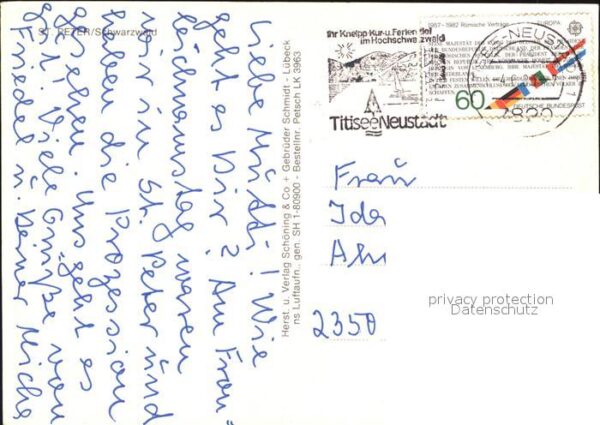 ST. PETER/Schwarzwald
Liebe Mutti! Wie
geht es Dir? Am Fron=
leichnamstag waren
wir in St. Peter und
haben die Prozession
gesehen. Uns geht es
gut. Viele Grüße von
Friedel u. Deiner
Herst. u. Verlag Schöning & Co + Gebrüder Schmidt - Lübeck
ns Luftaufn., gen. SH 1-80900 - Bestellnr. Petsch LK 3963
Ihr Kneipp Kur-u. Ferienziel
im Hochschwarzwald
Titisee Neustadt
1957-1982 Römische Verträge
EUROPA
60
DEUTSCHE BUNDESPOST
Frau
Ida
2350
privacy protection
Datenschutz